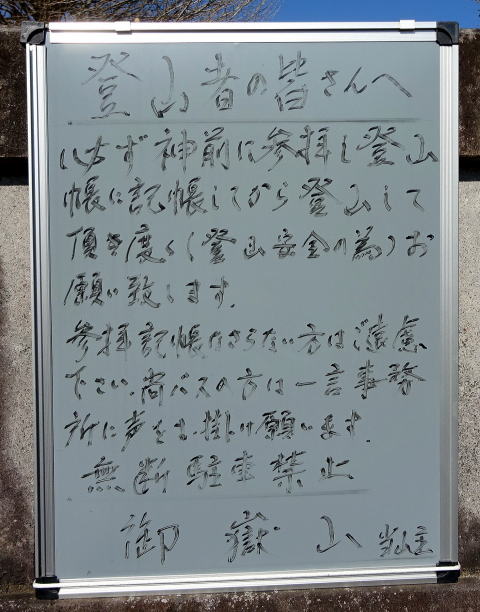 登山者の皆さんへ
必ず神前に参拝し登山
帳に記帳してから登山して
頂き度く(登山安全の為)お
願い致します。
参拝記帳なさらない方はご遠慮
下さい。尚バスの方は一言事務
所に声をお掛け願います。
無断駐車禁止
御嶽山 当山主